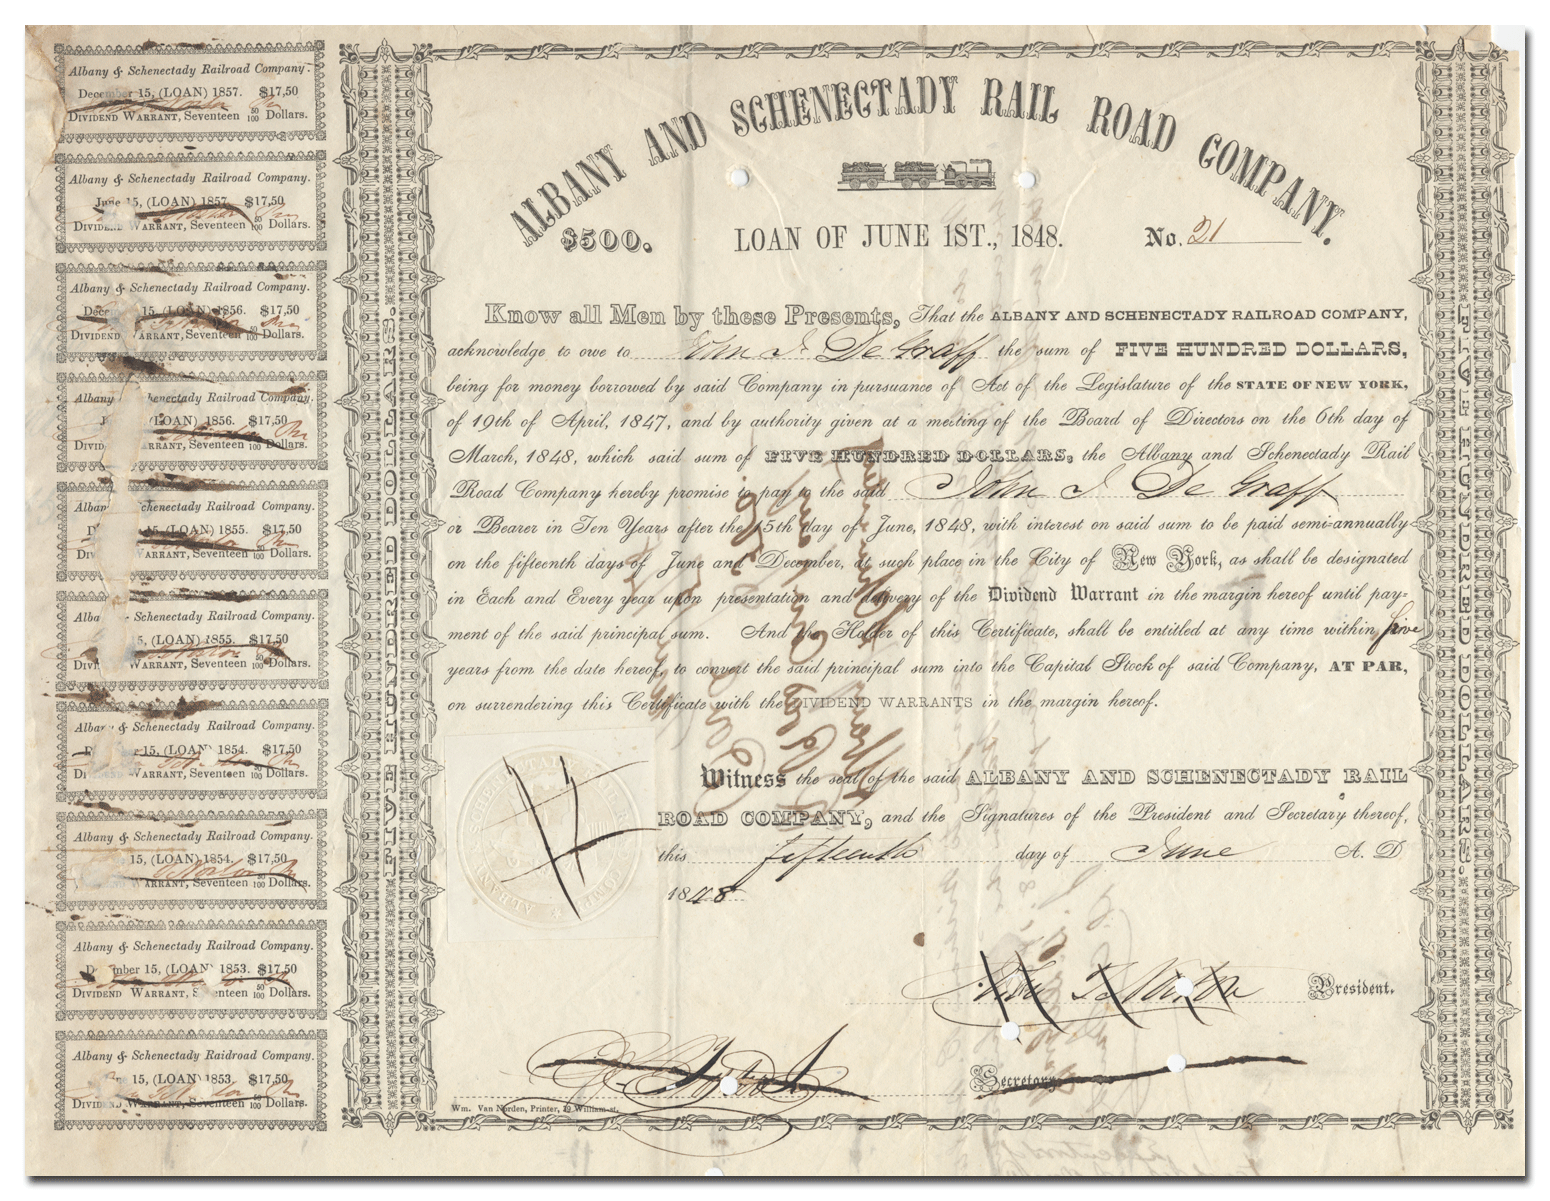 Albany & Schenectady Railroad Company.
December 15, (LOAN) 1857. $17,50
DIVIDEND WARRANT, Seventeen 50/100 Dollars.
Albany & Schenectady Railroad Company.
June 15, (LOAN) 1857. $17,50
DIVIDEND WARRANT, Seventeen 50/100 Dollars.
Albany & Schenectady Railroad Company.
15, (LOAN) 1856. $17,50
DIVIDEND WARRANT, Seventeen 50/100 Dollars.
Albany Schenectady Railroad Company.
(LOAN) 1856. $17,50
WARRANT, Seventeen 50/100 Dollars.
Albany Schenectady Railroad Company.
15, (LOAN) 1855. $17,50
WARRANT, Seventeen 50/100 Dollars.
Schenectady Railroad Company.
15, (LOAN) 1855. $17,50
WARRANT, Seventeen 50/100 Dollars.
Albany & Schenectady Railroad Company.
15, (LOAN) 1854. $17,50
WARRANT, Seventeen 50/100 Dollars.
Albany & Schenectady Railroad Company.
15, (LOAN) 1854. $17,50
WARRANT, Seventeen 50/100 Dollars.
Albany & Schenectady Railroad Company.
15, (LOAN) 1853. $17,50
DIVIDEND WARRANT, Seventeen 50/100 Dollars.
Albany & Schenectady Raidroad Company.
15, (LOAN) 1853. $17,50
WARRANT, Seventeen 50/100 Dollars.
FIVE HUNDRED DOLLARS.
ALBANY AND SCHENECTADY RAIL ROAD COMPANY.
$500. LOAN OF JUNE 1ST., 1848. No. 21
Know all Men by these Presents, That the ALBANY AND SCHENECTADY RAILROAD COMPANY,
acknowledge to owe to John I. De Graff the sum of FIVE HUNDRED DOLLARS,
being for money borrowed by said Company in pursuance of Act of the Legislature of the STATE OF NEW YORK,
of 19th of April, 1847, and by authority given at a meeting of the Board of Directors on the 6th day of
March, 1848, which said sum of FIVE HUNDRED DOLLARS, the Albany and Schenectady Rail
Road Company hereby promise to pay to the said John I De Graff
or Bearer in Ten Years after the 15th day of June, 1848, with interest on said sum to be paid semi-annually
on the fifteenth days of June and December, at such place in the City of New York, as shall be designated
in Each and Every year upon presentation and delivery of the Dividend Warrant in the margin hereof until pay-
ment of the said principal sum. And the Holder of this Certificate, shall be entitled at any time within five
years from the date hereof, to convert the said principal sum into the Capital Stock of said Company, AT PAR,
on surrendering this Certificate with the DIVIDEND WARRANTS in the margin hereof.
Witness the seal of the said ALBANY AND SCHENECTADY RAIL
ROAD COMPANY, and the Signatures of the President and Secretary thereof,
this fifteenth day of June A. D
1848
President.
Secretary
Wm. Van Norden, Printer, 39 William-st.
FIVE HUNDRED DOLLARS.